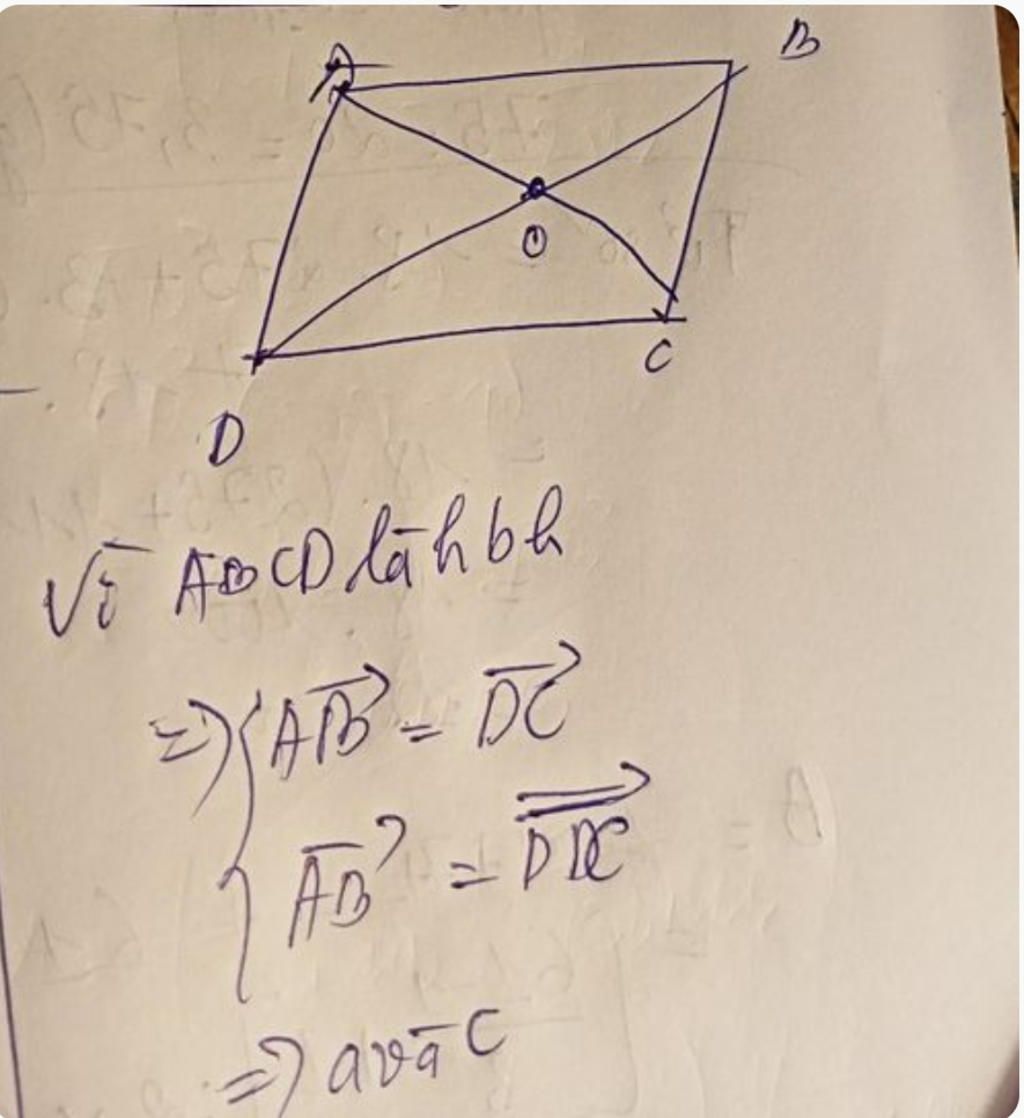 A B
O
C
D
Vì ABCD là hbh
=> { AB = DC
AB = DC
=> a và c